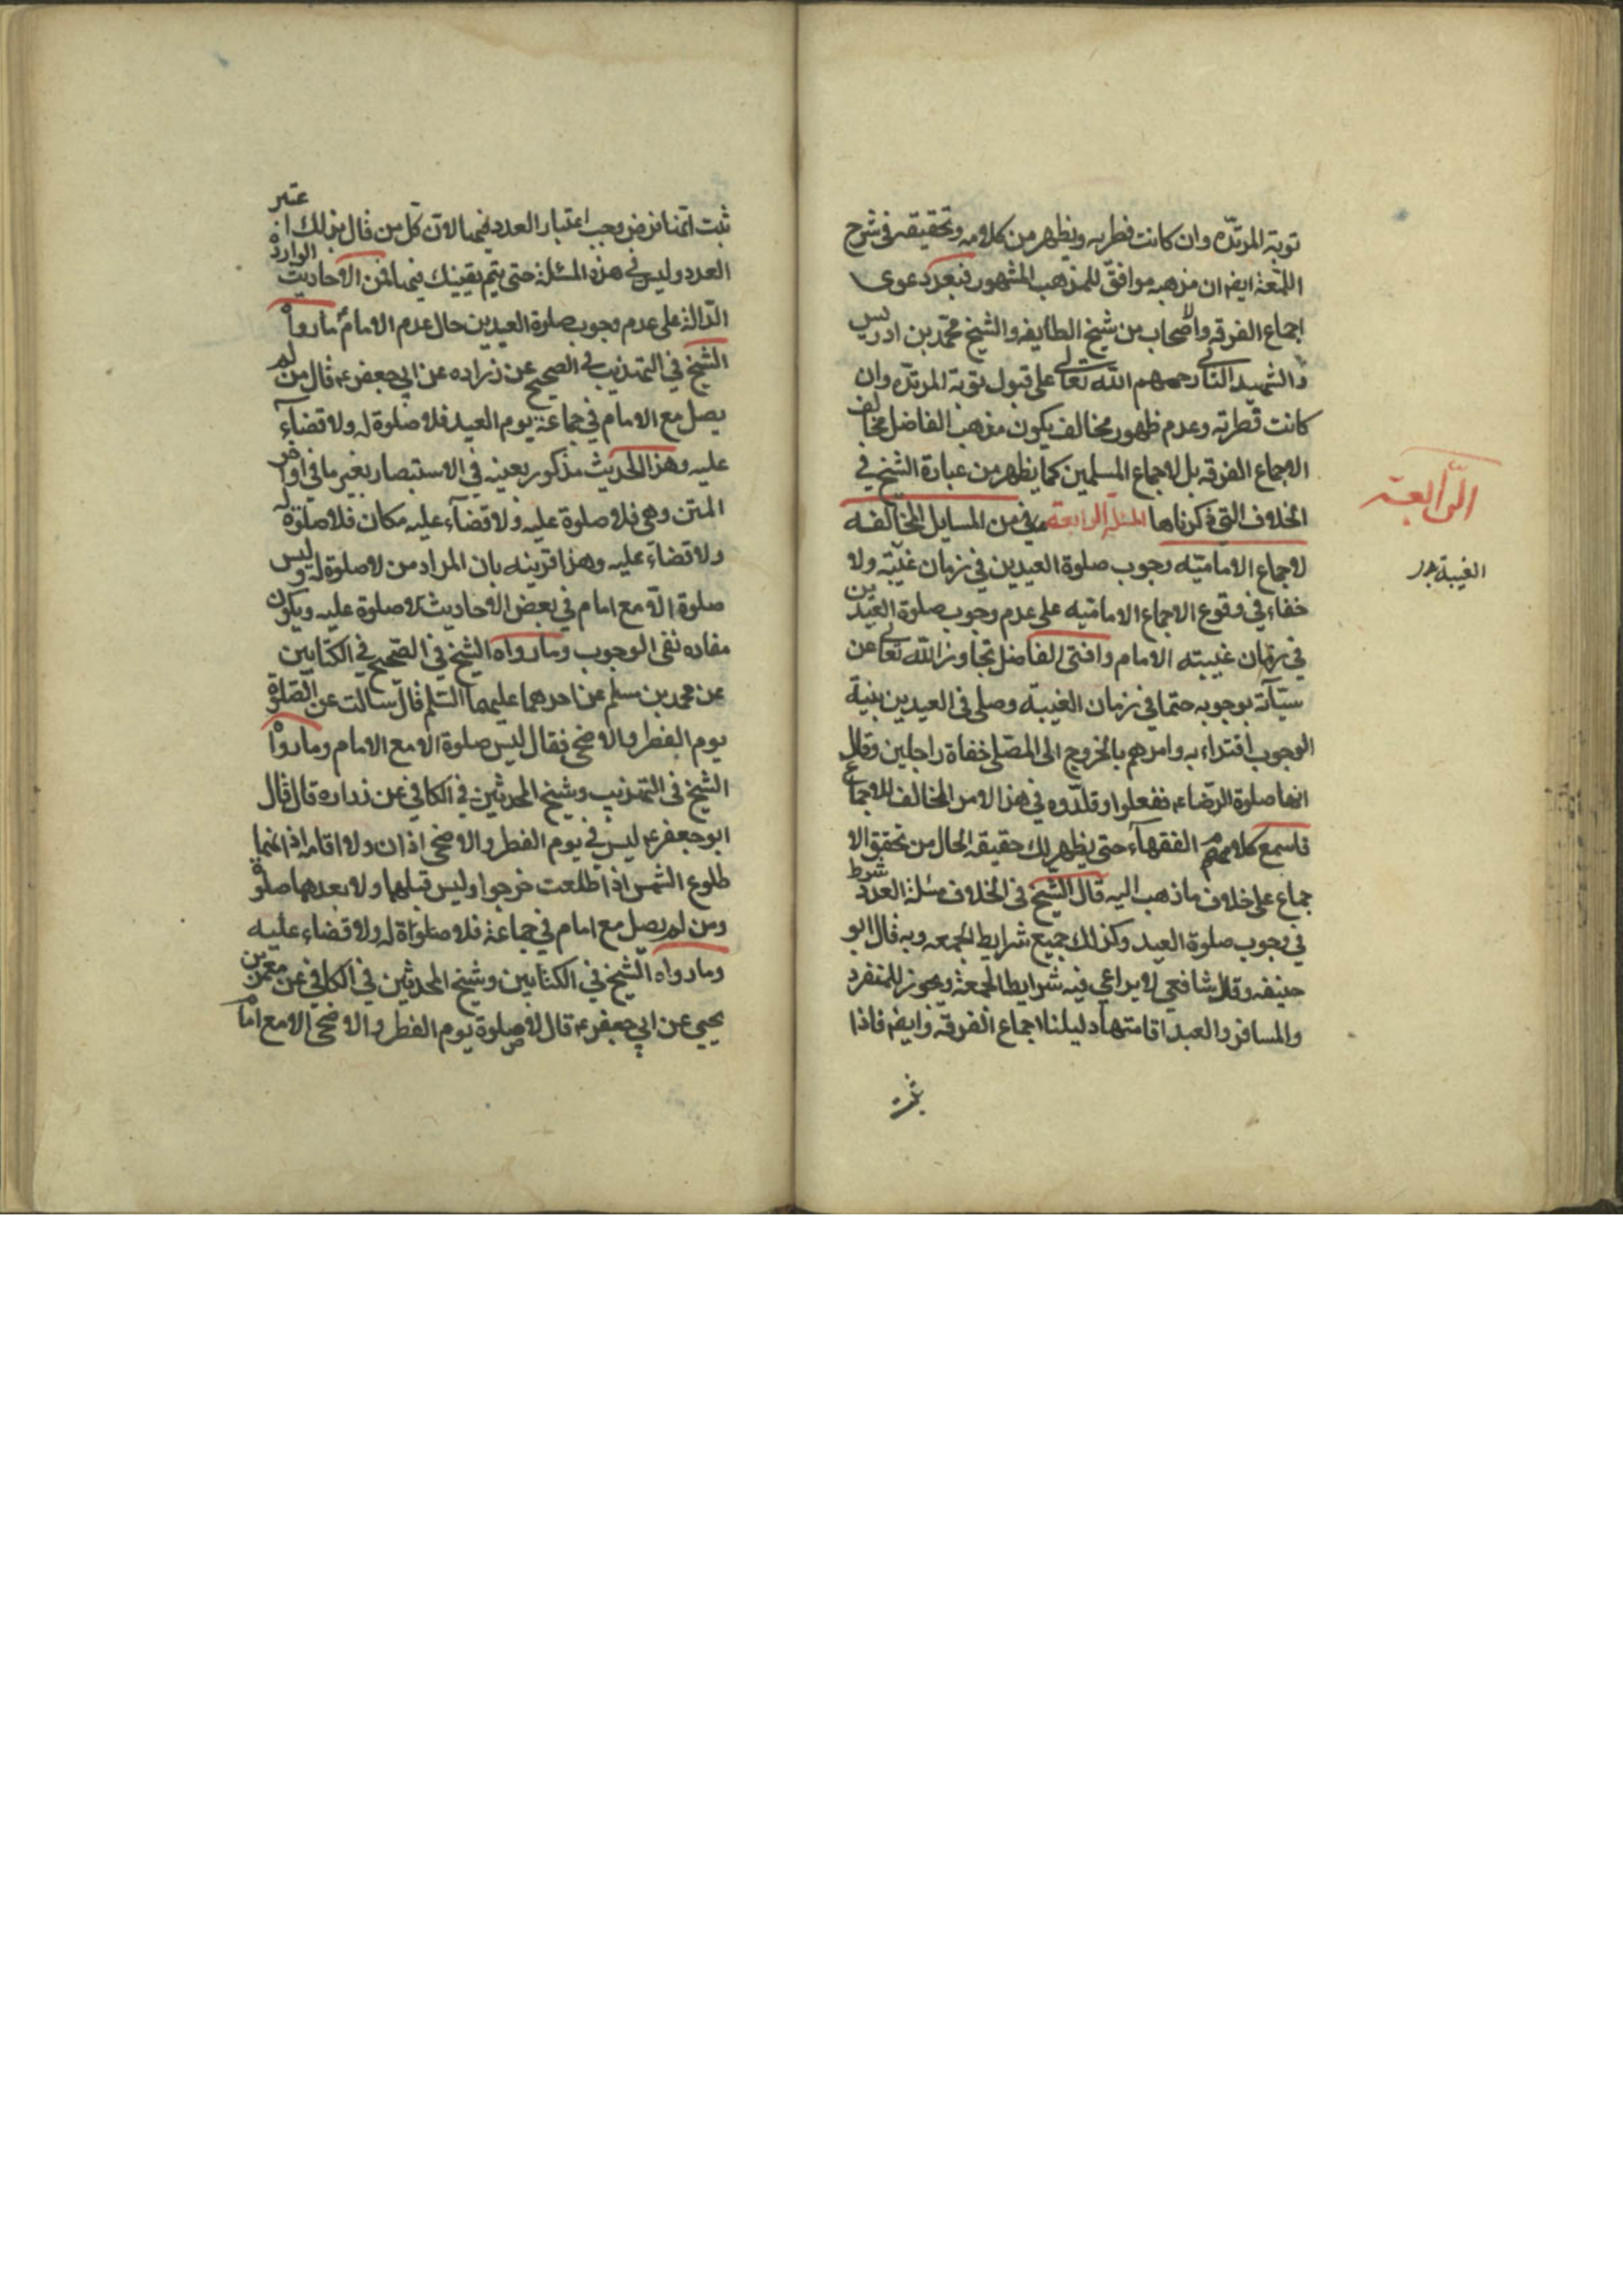 توبة المرتده وان كانت فطريه ويظهر من كلامه وتحقيقه فى شرح
اللمعة ايضا ان مذهبه موافق للمذهب المشهور فبعد دعوى
اجماع الفرقه والاصحاب من شيخ الطايفه والشيخ محمد بن ادريس
والشهيد الثانى رحمهم الله تعالى على قبول توبة المرتده وان
كانت فطريه وعدم ظهور مخالف يكون مذهب الفاضل مخالف
الاجماع الفرقه بل لاجماع المسلمين كما يظهر من عبارة الشيخ في
الخلاف التي ذكرناها المسئلة الرابعة من المسايل المخالفه
الرابعة
لاجماع الاماميه وجوب صلوة العيدين في زمان غيبته ولا
الغيبة
خفاء في وقوع الاجماع الاماميه على عدم وجوب صلوة العيدين
في زمان غيبته الامام وافتى الفاضل تجاوز الله تعالى عن
سيّآته بوجوبه حتما في زمان الغيبة وصلى فى العيدين بنية
الوجوب اقتداء به وامرهم بالخروج الى المصلى حفاة راجلين وقال
انها صلوة الرضاء ففعلوا وقلدوه في هذا الامر المخالف للاجماع
فاسمع كلامهم الفقهآء حتى يظهر لك حقيقه الحال من تحقق الا
جماع على خلاف ما ذهب اليه قال الشيخ فى الخلاف مسئلة العدد شرط
في وجوب صلوة العيد وكذلك جميع شرايط الجمعه وبه قال ابو
حنيفه وقال شافعي لا يراعي فيه شرايط الجمعة ويجوز للمنفرد
والمسافر والعبد اقامتها دليلنا اجماع الفرقه وايضا فاذا
ثبت
ثبت انها فرض وجب اعتبار العدد فيها لان كل من قال بذلك اعتبر
العدد وليس في هذه المسئلة حتى يتم يقينك فيها فمن الاحاديث الواردة
الدالة على عدم وجوب صلوة العيدين حال عدم الامام ما رواه
الشيخ في التهذيب في الصحيح عن زراره عن ابي جعفر ع قال من لم
يصل مع الامام في جماعة يوم العيد فلا صلوة له ولا قضآء
عليه وهذا الحديث مذكور بعينه في الاستبصار بغير ما في اواخر
المتن وهى فلا صلوة عليه ولا قضآء عليه مكان فلا صلوة له
ولا قضاء عليه وهذا قرينه بان المراد من لا صلوة له وليس
صلوة الا مع امام في بعض الاحاديث لا صلوة عليه ويكون
مفاده نفى الوجوب وما رواه الشيخ في الصحيح في الكتابين
عن محمد بن مسلم عن احدهما عليهما السلم قال سالت عن الصلوة
يوم الفطر والاضحى فقال ليس صلوة الا مع الامام وما رواه
الشيخ فى التهذيب وشيخ المحدثين في الكافي عن زراره قال قال
ابو جعفر ع ليس في يوم الفطر والاضحى اذان ولا اقامه اذانهما
طلوع الشمس اذا طلعت خرجوا وليس قبلهما ولا بعدهما صلوة
ومن لم يصل مع امام في جماعة فلا صلواة له ولا قضاء عليه
وما رواه الشيخ في الكتابين وشيخ المحدثين في الكافي عن معمر بن
يحيى عن ابي جعفر ع قال لا صلوة يوم الفطر والاضحى الا مع امام